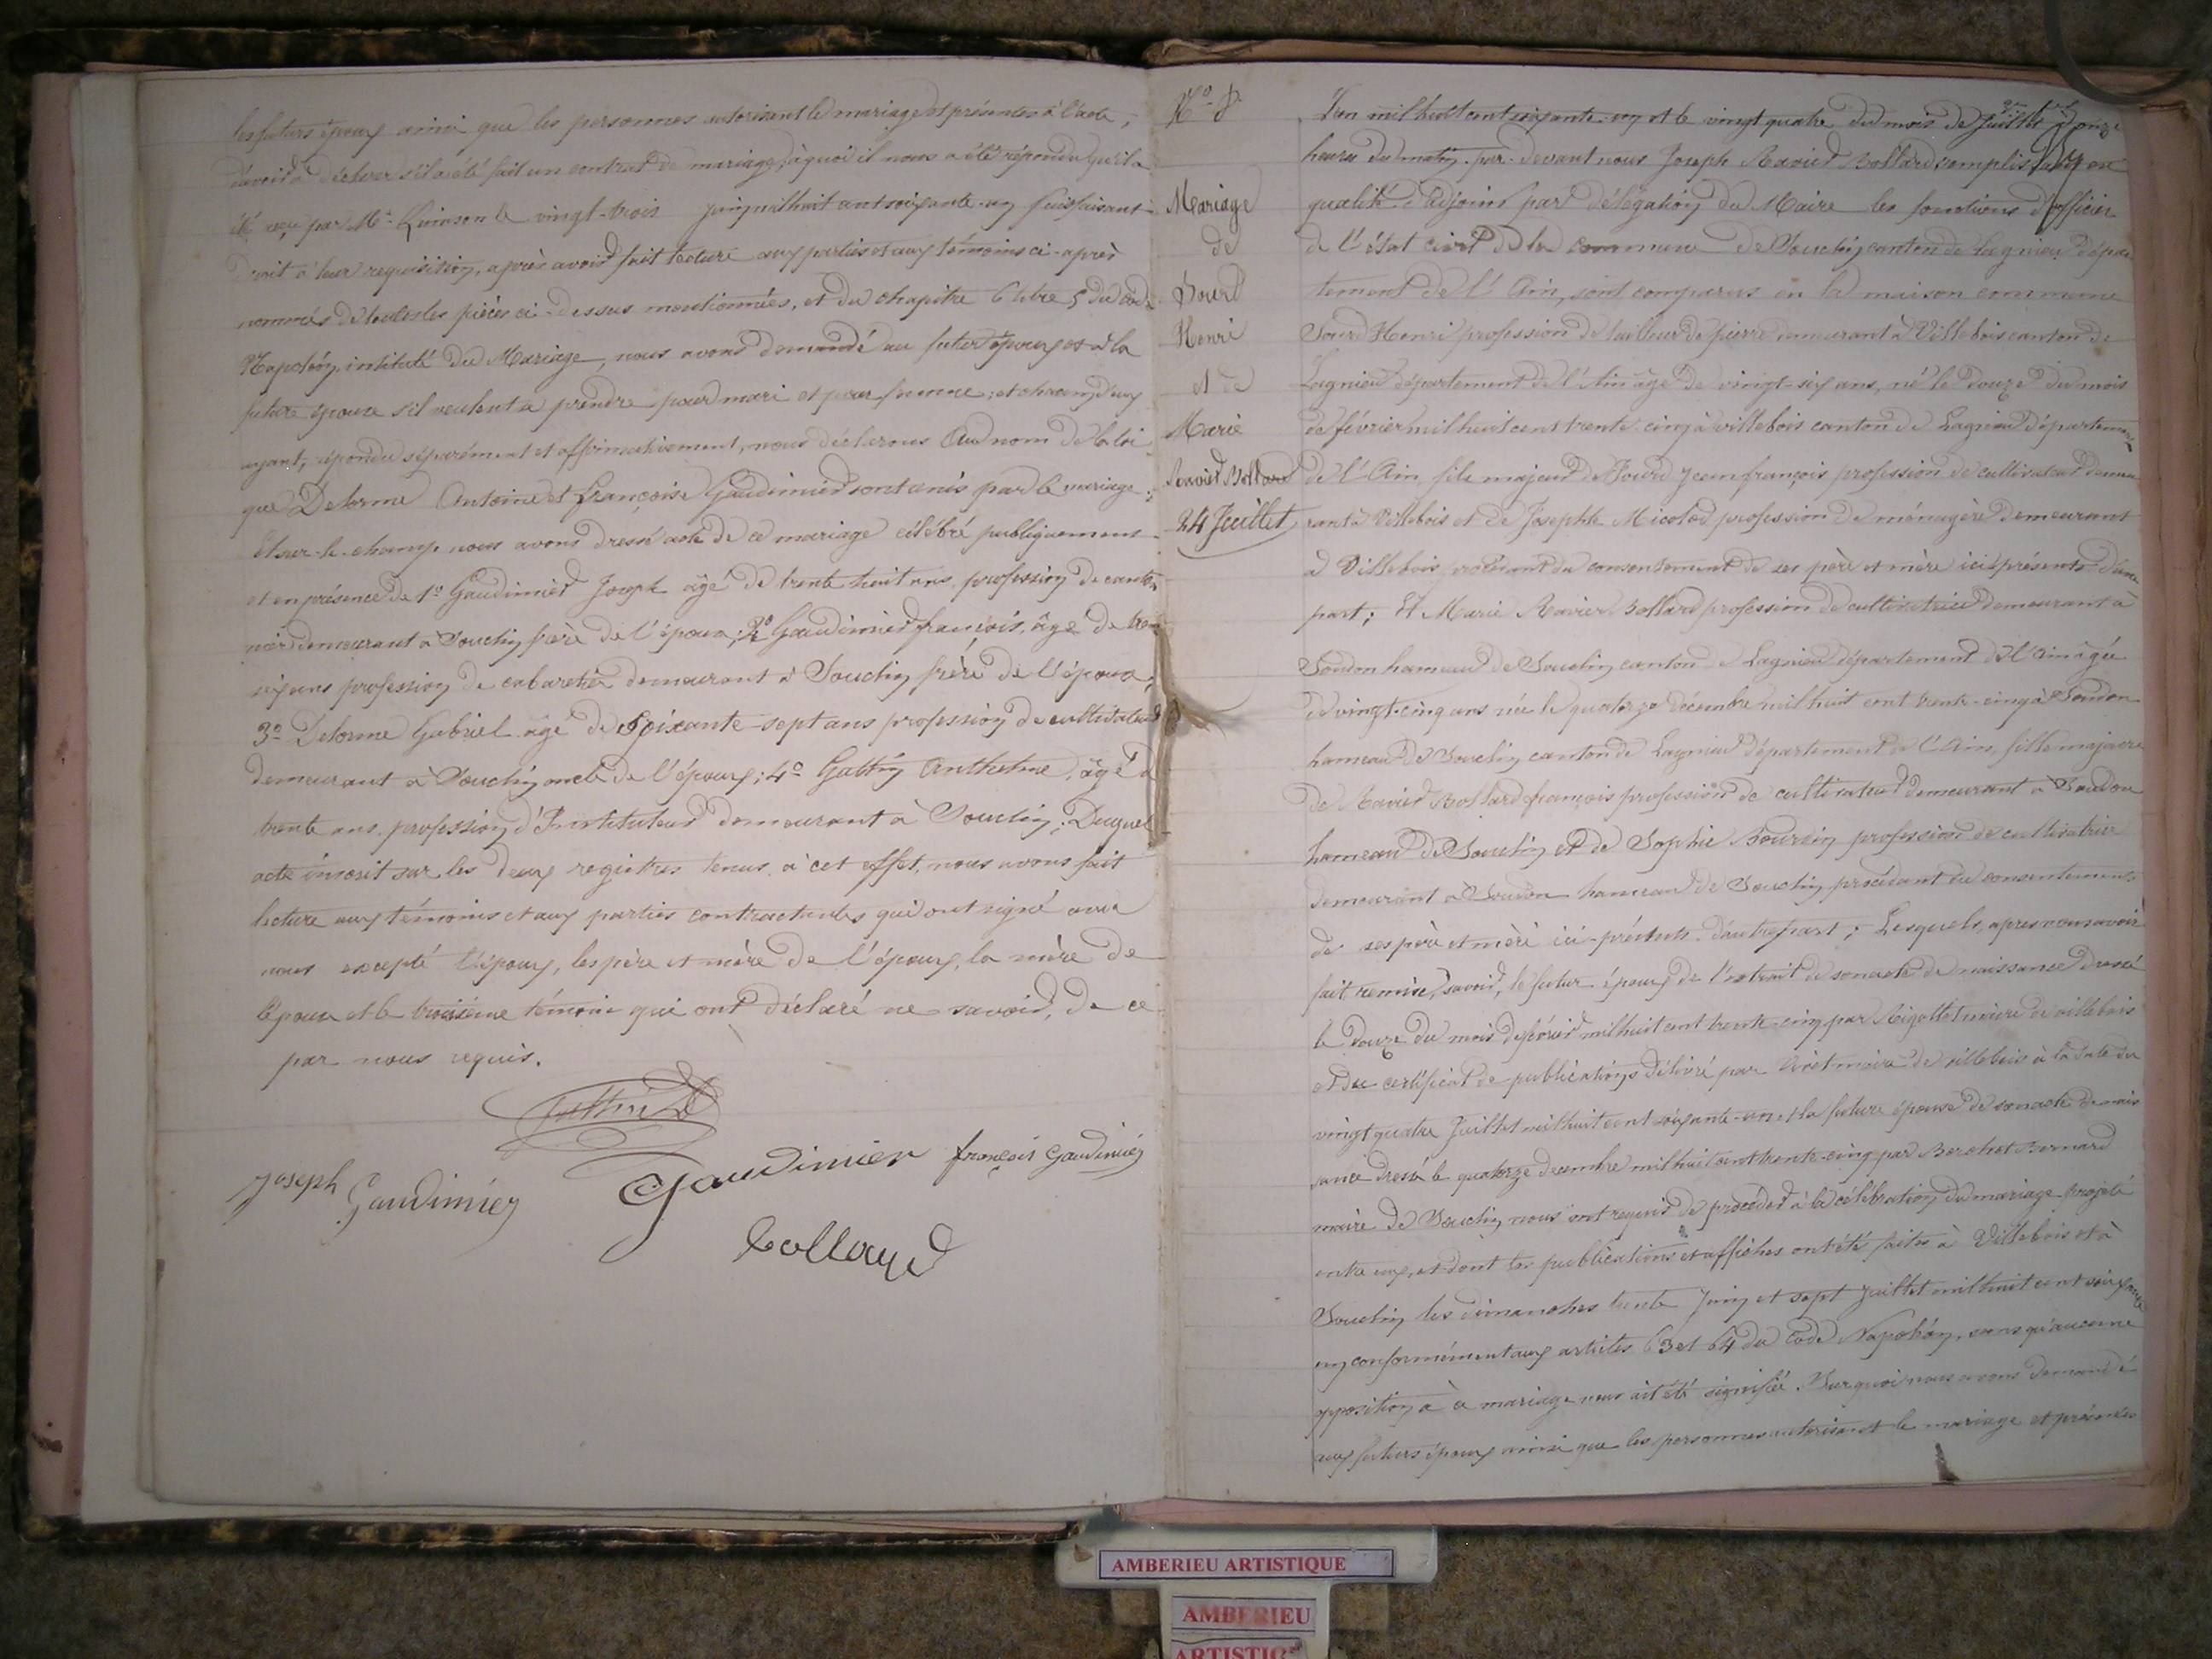 les futurs époux ainsi que les personnes autorisant le mariage et présentes à l'acte,
d'avoir à déclarer s'il a été fait un contrat de mariage, à quoi il nous a été répondu qu'il a
été reçu par Me Quinson le vingt-trois juin mil huit cent soixante-un puis faisant
droit à leur requisition, après avoir fait lecture aux parties et aux témoins ci-après
nommés de toutes les pièces ci-dessus mentionnées, et du chapitre 6 titre 5 du Code
Napoléon, intitulé du Mariage, nous avons demandé au futur époux et à la
future épouse s'il veulent se prendre pour mari et pour femme; et chacun d'eux
ayant répondu séparément et affirmativement, nous déclarons Au nom de la loi
que Delorme Antoine et Françoise Gaudinier sont unis par le mariage;
Et sur-le-champ nous avons dressé acte de ce mariage célébré publiquement
et en présence de 1º Gaudinier Joseph âgé de trente huit ans, profession de canton
nier demeurant à Souclin frère de l'épouse; 2º Gaudinier françois, âgé de trente
six ans profession de cabaretier demeurant à Souclin frère de l'épouse;
3º Delorme Gabriel âgé de soixante-sept ans profession de cultivateur
demeurant à Souclin oncle de l'époux; 4º Anthelme, âgé de
trente ans, profession d'Instituteur demeurant à Souclin; Duquel
acte inscrit sur les deux registres tenus à cet effet, nous avons fait
lecture aux témoins et aux parties contractantes qui ont signé avec
nous excepté l'époux, les père et mère de l'époux, la mère de
l'épouse et le troisième témoin qui ont déclaré ne savoir, de ce
par nous requis.
Joseph Gaudinier
Gaudinier
françois Gaudinier
Nº 8
Mariage
de
Sourd
Henri
et de
Marie
Ravier Bollard
24 Juillet
L'an mil huit cent soixante-un et le vingt quatre du mois de Juillet à onze
heures du matin par-devant nous Joseph Ravier Bollard remplissant en
qualité d'Adjoint par délégation du Maire les fonctions d'officier
de l'état civil de la commune de Souclin, canton de Lagnieu dépar
tement de l'Ain, sont comparus en la maison commune
Sourd Henri profession de tailleur de pierre demeurant à Villebois canton de
Lagnieu département de l'Ain âgé de vingt-six ans, né le douze du mois
de février mil huit cent trente-cinq à villebois canton de Lagnieu département
de l'Ain, fils majeur de Sourd Jean françois profession de cultivateur demeu
rant à Villebois et de Josephte Micolod profession de ménagère demeurant
à Villebois procédant du consentement de ses père et mère ici présents d'une
part; Et Marie Ravier Bollard profession de cultivatrice demeurant à
Soudon hameau de Souclin canton de Lagnieu département de l'Ain âgée
de vingt-cinq ans née le quatorze décembre mil huit cent trente-cinq à Soudon
hameau de Souclin canton de Lagnieu département de l'Ain, fille majeure
de Ravier Bollard françois profession de cultivateur demeurant à Soudon
hameau de Souclin et de Sophie Boursin profession de cultivatrice
demeurant à Soudon hameau de Souclin procédant du consentement
de ses père et mère ici-présents d'autre part; Lesquels, apres nous avoir
fait remise, savoir, le futur époux de l'extrait de son acte de naissance dressé
le douze du mois de février mil huit cent trente-cinq par Rigollet maire de villebois
et du certificat de publications délivré par maire de villebois à la date du
vingt quatre Juillet mil huit cent soixante-un et la future épouse de son acte de nais
sance dressé le quatorze decembre mil huit cent trente-cinq par Berchet Bernard
maire de Souclin, nous ont requis de procéder à la célébration du mariage projeté
entre eux, et dont les publications et affiches ont été faites à Villebois et à
Souclin les dimanches trente Juin et sept Juillet mil huit cent soixante
un conformément aux articles 63 et 64 du Code Napoléon, sans qu'aucune
opposition à ce mariage nous ait été signifiée. Sur quoi nous avons demandé
aux futurs époux ainsi que les personnes autorisant le mariage et présentes
AMBERIEU ARTISTIQUE
AMBERIEU
ARTISTIQ